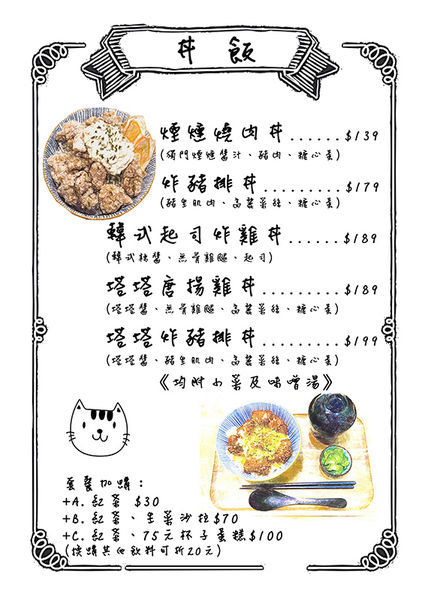 丼飯
煙燻燒肉丼......$139
(獨門煙燻醬汁、豬肉、糖心蛋)
炸豬排丼.........$179
(豬里肌肉、高麗菜絲、糖心蛋)
韓式起司炸雞丼.......$189
(韓式辣醬、無骨雞腿、起司)
塔塔唐揚雞丼.........$189
(塔塔醬、無骨雞腿、高麗菜絲、糖心蛋)
塔塔炸豬排丼.........$199
(塔塔醬、豬里肌肉、高麗菜絲、糖心蛋)
《均附小菜及味噌湯》
套餐加購：
+A.紅茶 $30
+B.紅茶、生菜沙拉$70
+C.紅茶、75元杯子蛋糕$100
(換購其他飲料可折20元)